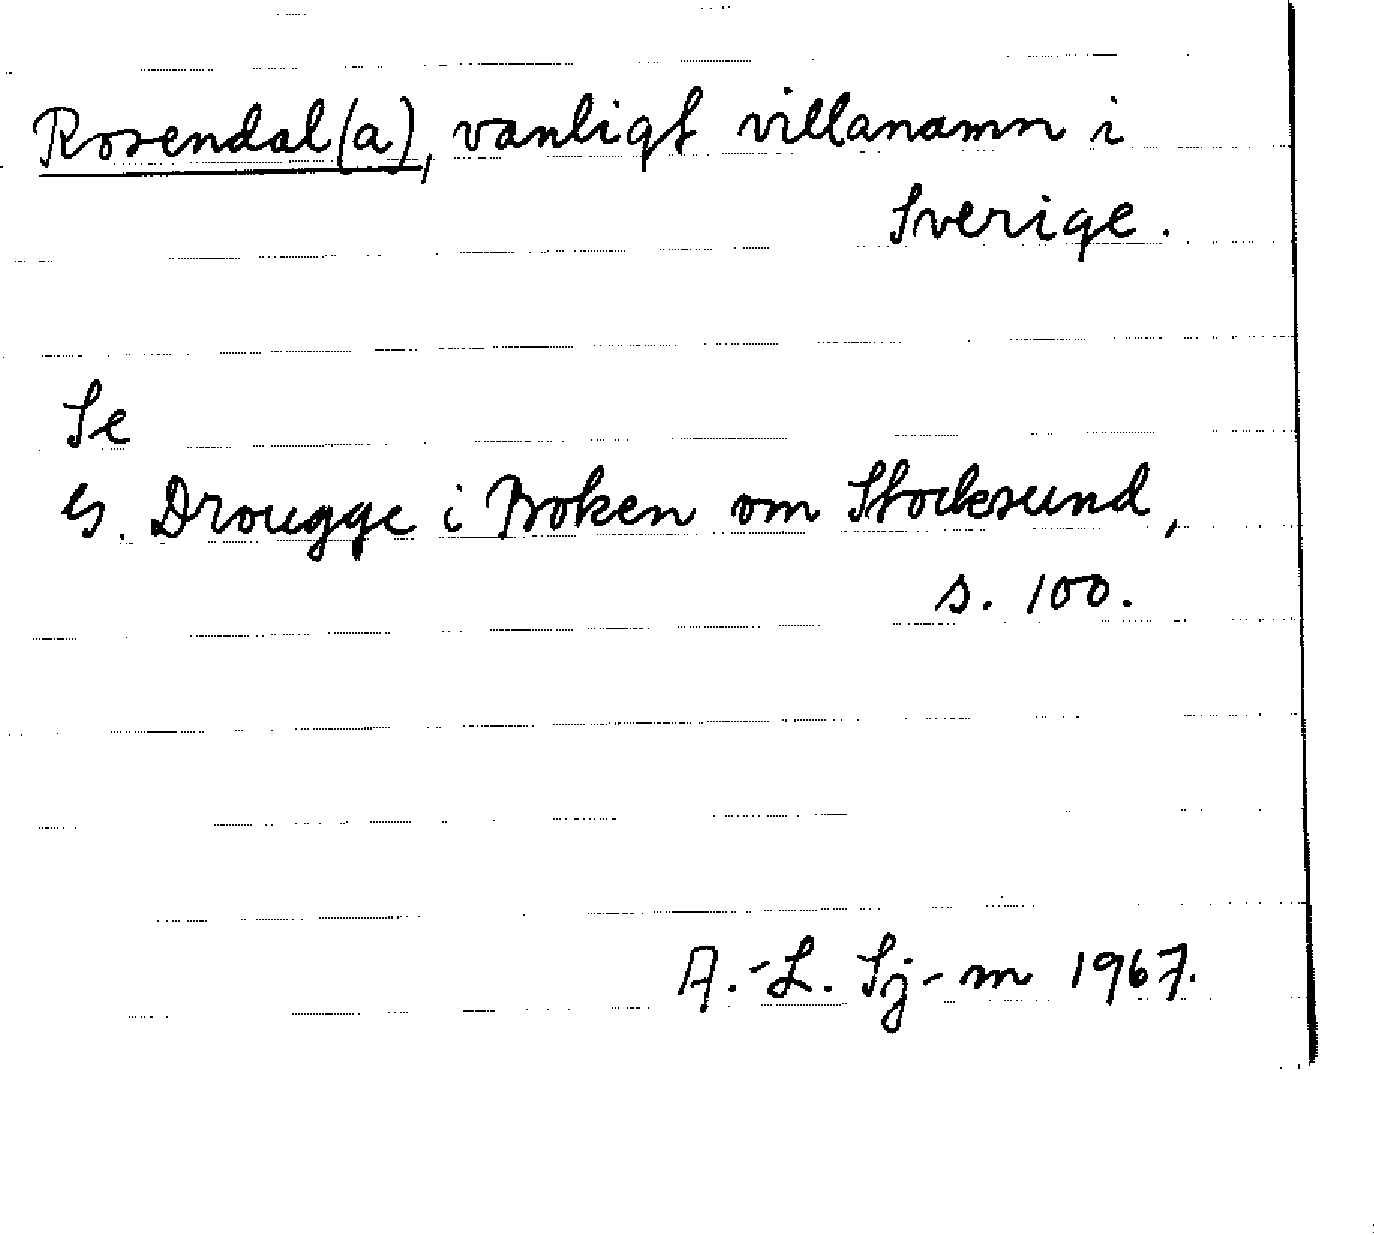 Rosendal(a), vanligt villanamn i
Sverige.
Se
G. Drougge i Boken om Stocksund,
s. 100.
A.-L. Sj-m 1967.